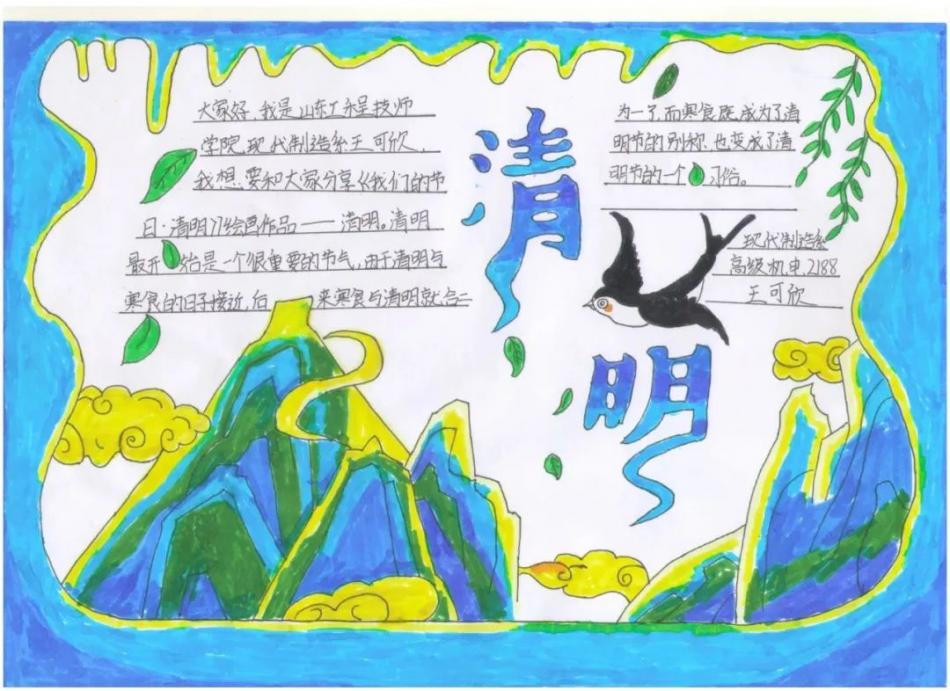 大家好，我是山东工程技师
学院现代制造系王可欣，
我想要和大家分享《我们的节
日·清明》绘画作品——清明。清明
最开始是一个很重要的节气，由于清明与
寒食的日子接近，后来寒食与清明就合二
为一了，而寒食既成为了清
明节的别称，也变成了清
明节的一个习俗。
清明
现代制造系
高级机电2188
王可欣